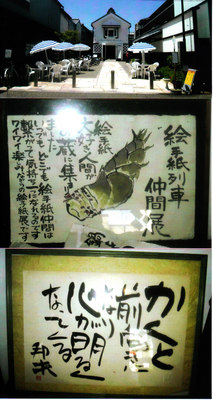 絵手紙列車
仲間展
絵手紙
大好き人間が
蔵に集い
ました
いつでもどこでも絵手紙仲間は
繋がって気持が一つになれるのです
ワイワイ楽しみんなの絵手紙展です
かくと
前向き
なり
心が明るく
なってくる